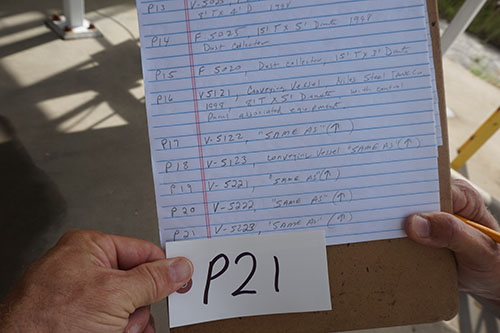 P13 V-5025,
5' T x 4' D 1998
P14 F-5025 15' T x 5' Diameter 1998
Dust Collector
P15 F-5020, Dust collector, 15' T x 2' Diameter
P16 V5121, Conveying Vessel Niles Steel Tank
1998, 8' T x 5' Diameter with control
Panel associated equipment
P17 V-5122, "SAME AS" (↑)
P18 V-5123, conveying Vessel "SAME AS" (↑)
P19 V-5221, "SAME AS" (↑)
P20 V-5222, "SAME AS" (↑)
P21 V-5223, "SAME AS" (↑)
P21